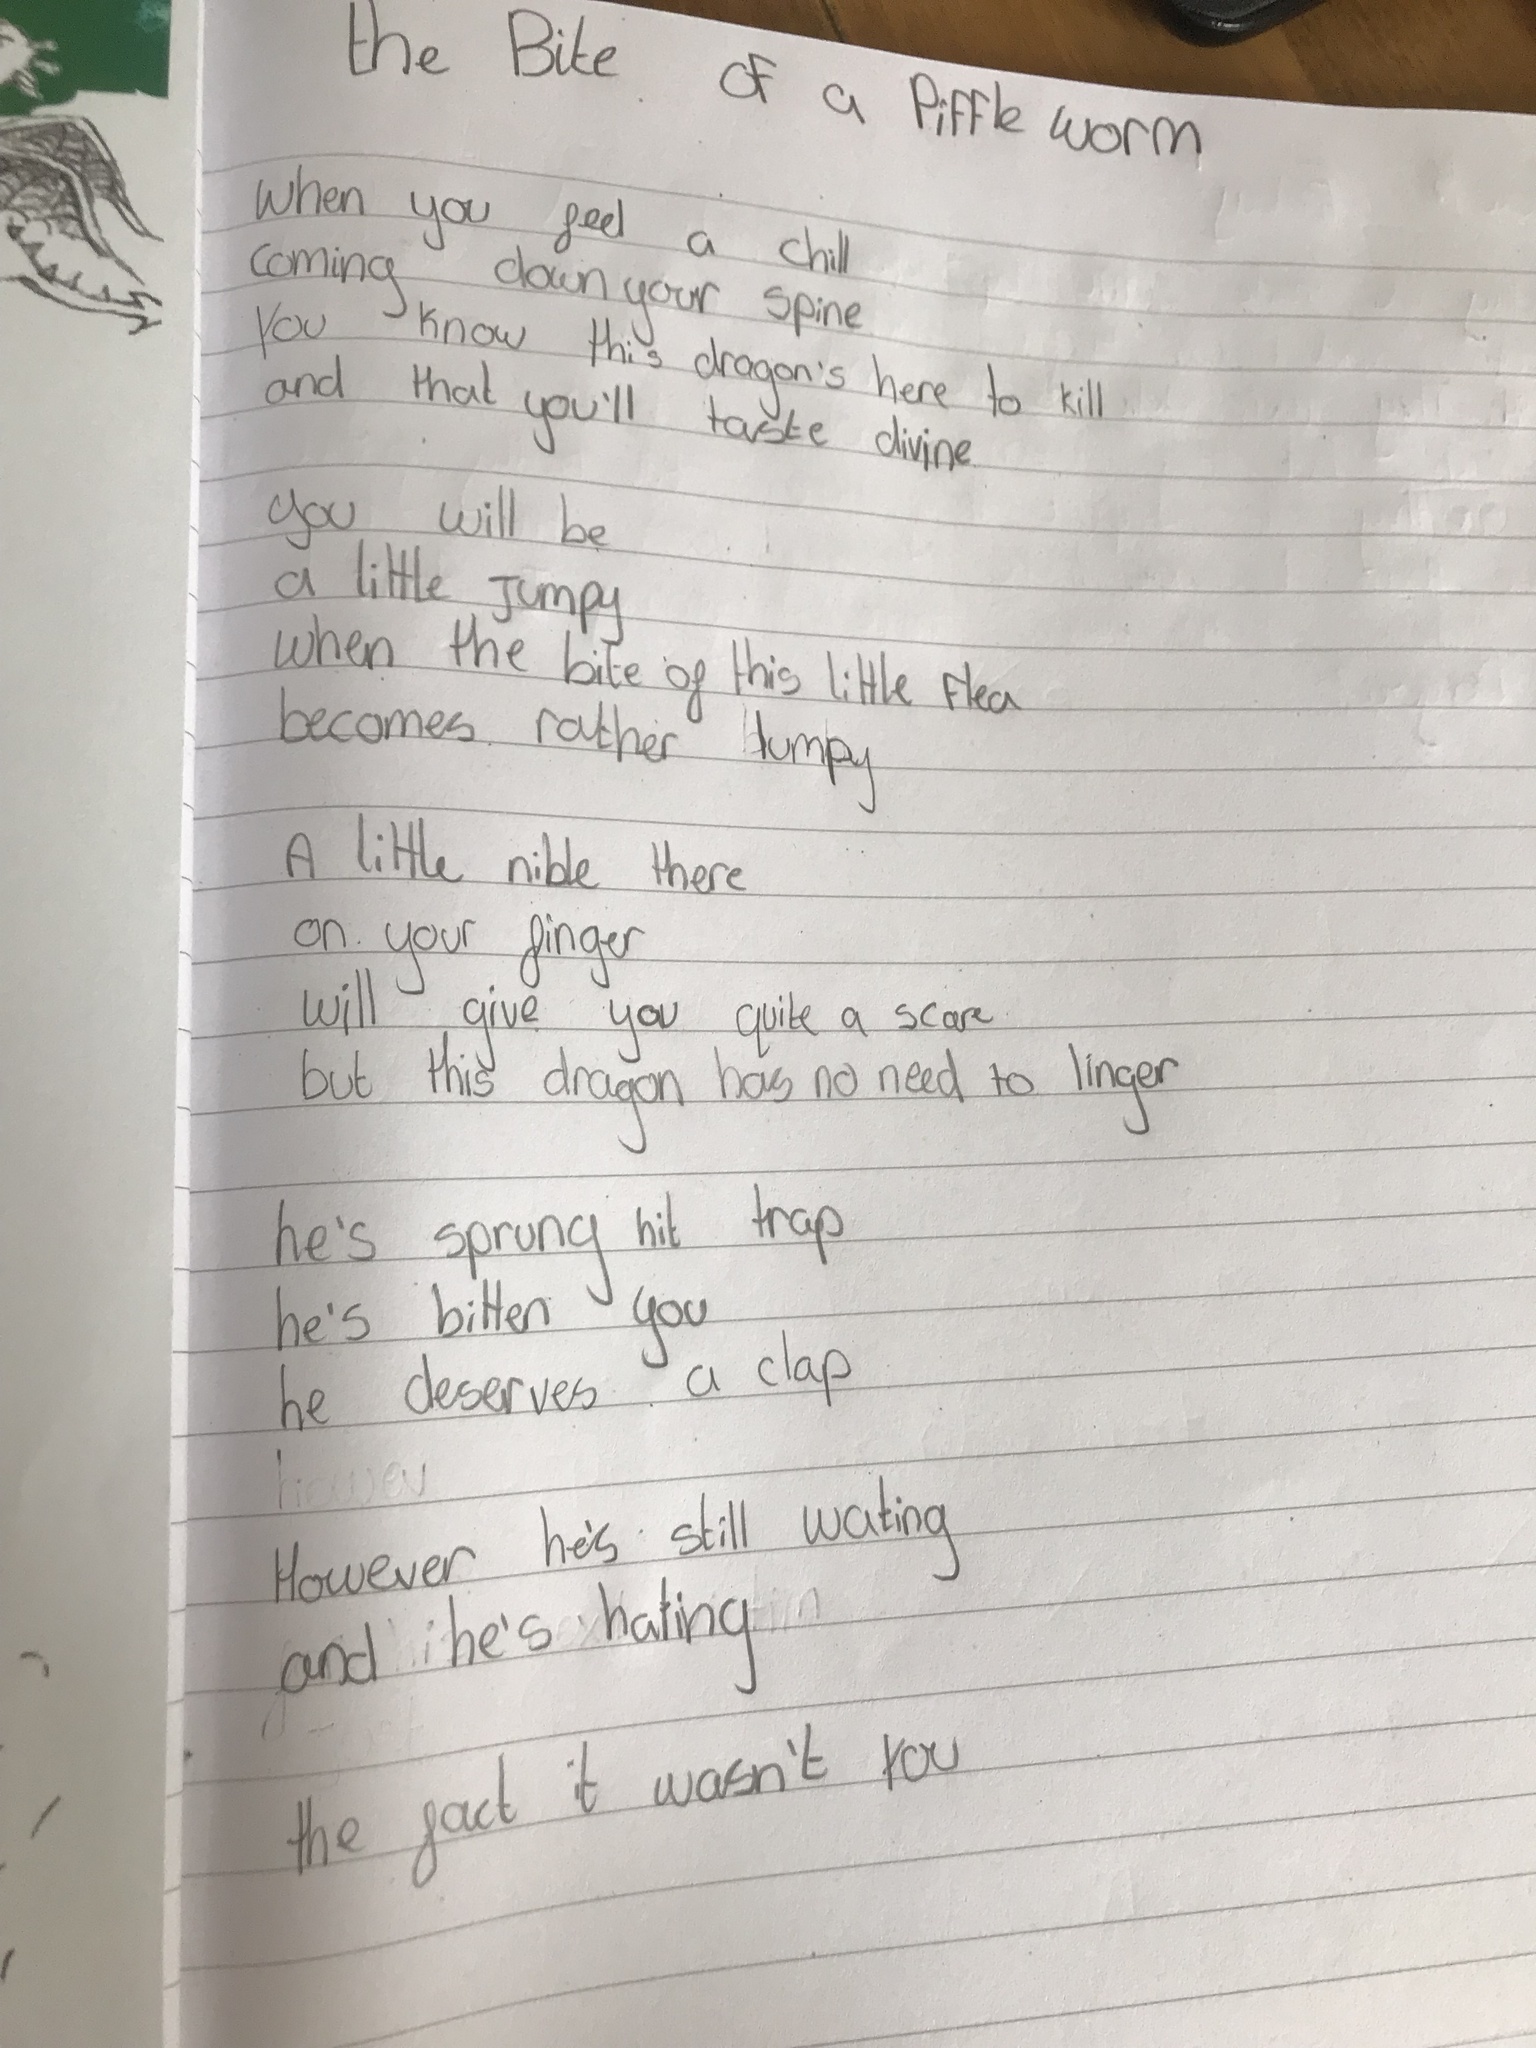 the Bite of a Piffle worm
When you feel a chill
coming down your spine
You know this dragon's here to kill
and that you'll taste divine
you will be
a little Jumpy
when the bite of this little flea
becomes rather lumpy
A little nible there
on your finger
will give you quite a scare
but this dragon has no need to linger
he's sprung hit trap
he's bitten you
he deserves a clap
howev
However he's still wating
and he's hating
the fact it wasn't You